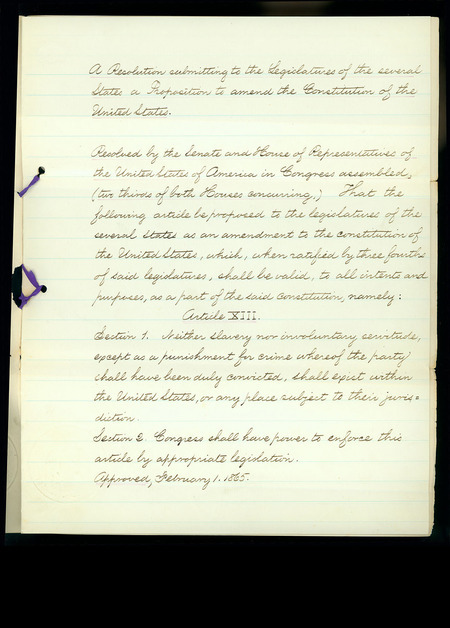 A Resolution submitting to the Legislatures of the several
States a Proposition to amend the Constitution of the
United States.
Resolved by the Senate and House of Representatives of
the United States of America in Congress assembled,
(two thirds of both Houses concurring,) That the
following article be proposed to the legislatures of the
several States as an amendment to the constitution of
the United States, which, when ratified by three fourths
of said legislatures, shall be valid, to all intents and
purposes, as a part of the said Constitution, namely:
Article XIII.
Section 1. Neither slavery nor involuntary servitude,
except as a punishment for crime whereof the party
shall have been duly convicted, shall exist within
the United States, or any place subject to their juris=
diction.
Section 2. Congress shall have power to enforce this
article by appropriate legislation.
Approved, February 1. 1865.